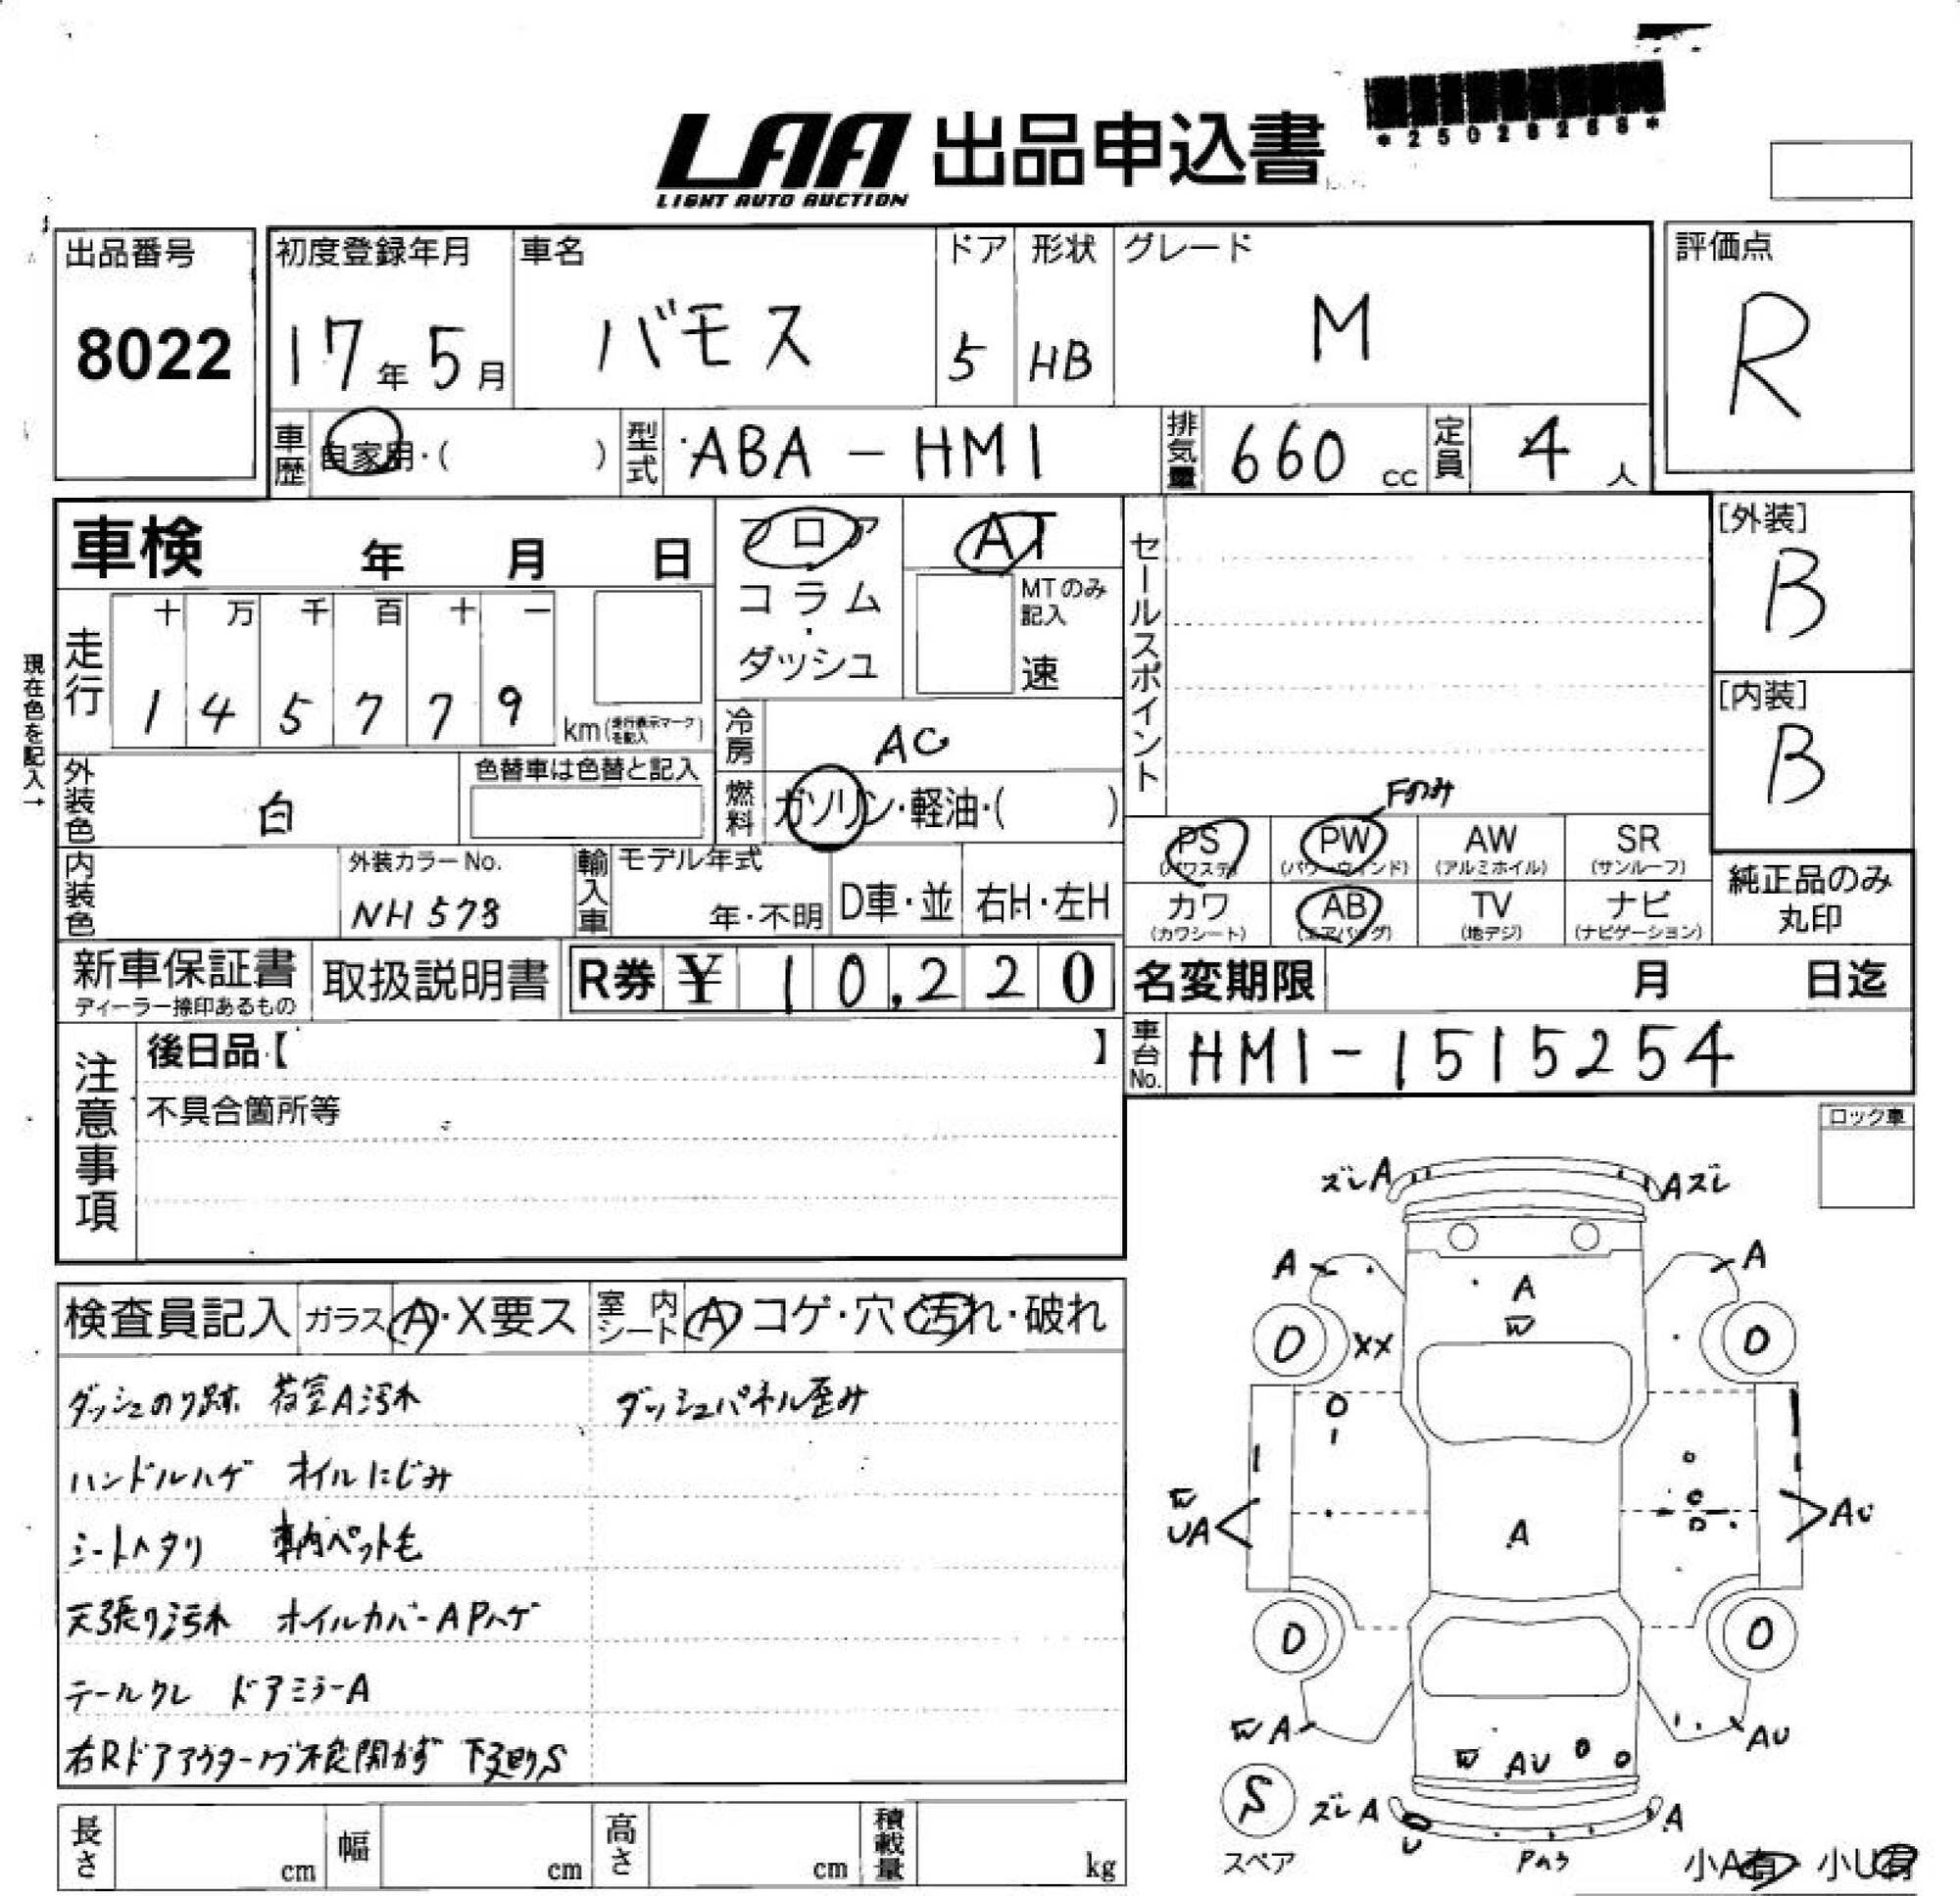 LAA 出品申込書
LIGHT AUTO AUCTION
*25028268*
出品番号
8022
初度登録年月
17年5月
車名
バモス
ドア
5
形状
HB
グレード
M
評価点
R
車歴
自家用・( )
型式
ABA-HM1
排気量
660 cc
定員
4 人
車検 年 月 日
フロア
コラム
・
ダッシュ
AT
MTのみ
記入
速
セールスポイント
[外装]
B
[内装]
B
現在色を記入→
走行
十 万 千 百 十 一
1 4 5 7 7 9
km(走行表示マークを記入)
冷房
AC
外装色
白
色替車は色替と記入
燃料
ガソリン・軽油・( )
Fのみ
PS
(パワステ)
PW
(パワーウィンド)
AW
(アルミホイル)
SR
(サンルーフ)
カワ
(カワシート)
AB
(エアバッグ)
TV
(地デジ)
ナビ
(ナビゲーション)
純正品のみ
丸印
内装色
外装カラーNo.
NH578
輸入車
モデル年式
年・不明
D車・並
右H・左H
新車保証書
ディーラー捺印あるもの
取扱説明書
R券 ¥ 10,220
名変期限 月 日迄
車台No.
HM1-1515254
注意事項
後日品【 】
不具合箇所等
ロック車
検査員記入
ガラス A・X要ス
室内シート A コゲ・穴・汚れ・破れ
ダッシュのり跡 荷室A汚れ ダッシュパネル歪み
ハンドルハゲ オイルにじみ
シートヘタリ 車内ペット毛
天張り汚れ オイルカバーAPハゲ
テールクレ ドアミラーA
右Rドアアウターノブ不良開かず 下廻りS
ズレA
Aズレ
A
A
A
W
XX
W
UA
A
AU
WA
AU
W AU
S
スペア
ズレA
U
A
Pハゲ
小A有 小U有
長さ cm
幅 cm
高さ cm
積載量 kg